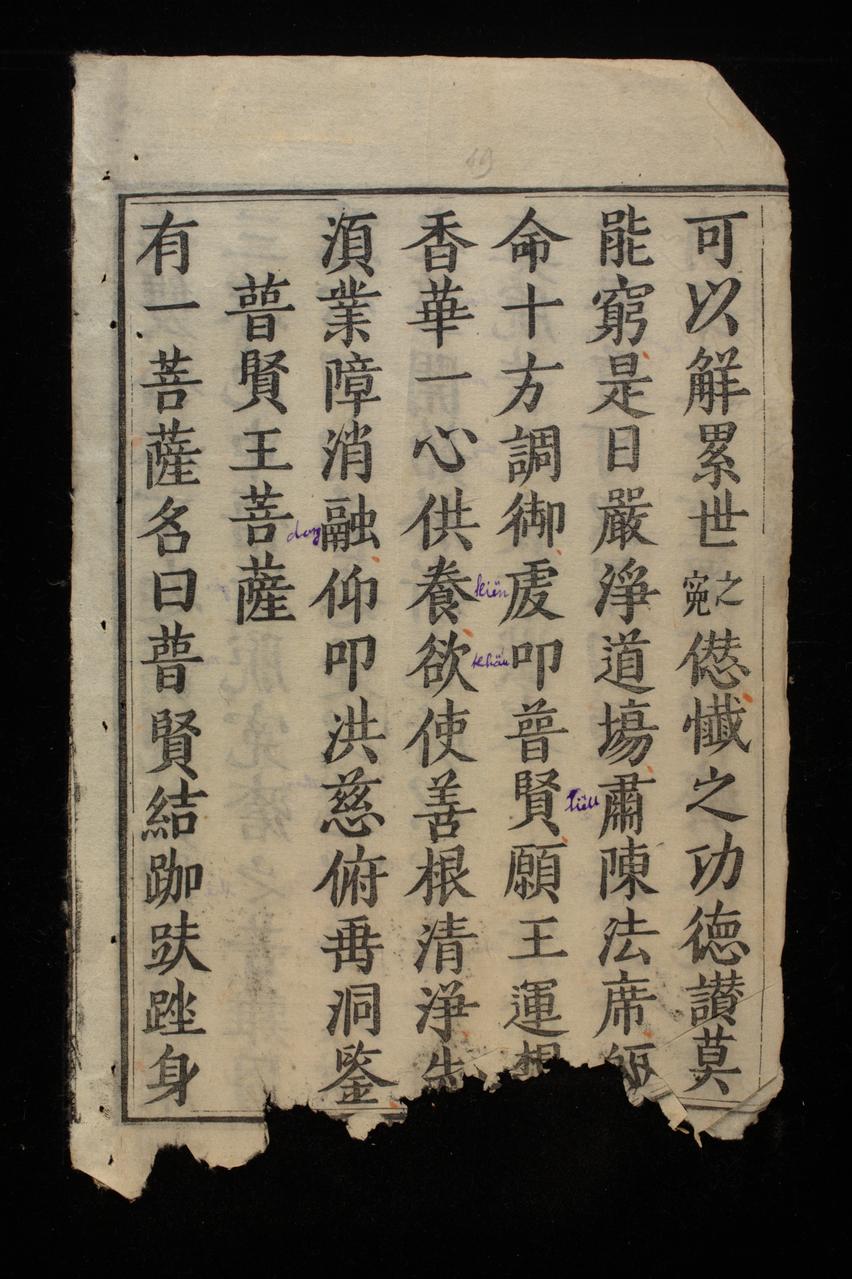 可以解累世之冤愆懺之功德讃莫
能窮是日嚴淨道塲肅陳法席皈
命十方調御虔叩普賢願王運想
香華一心供養欲使善根清淨先
湏業障消融仰叩洪慈俯垂洞鑒
普賢王菩薩
有一菩薩名曰普賢結跏趺踁身
kiền
khấu
tiêu
49